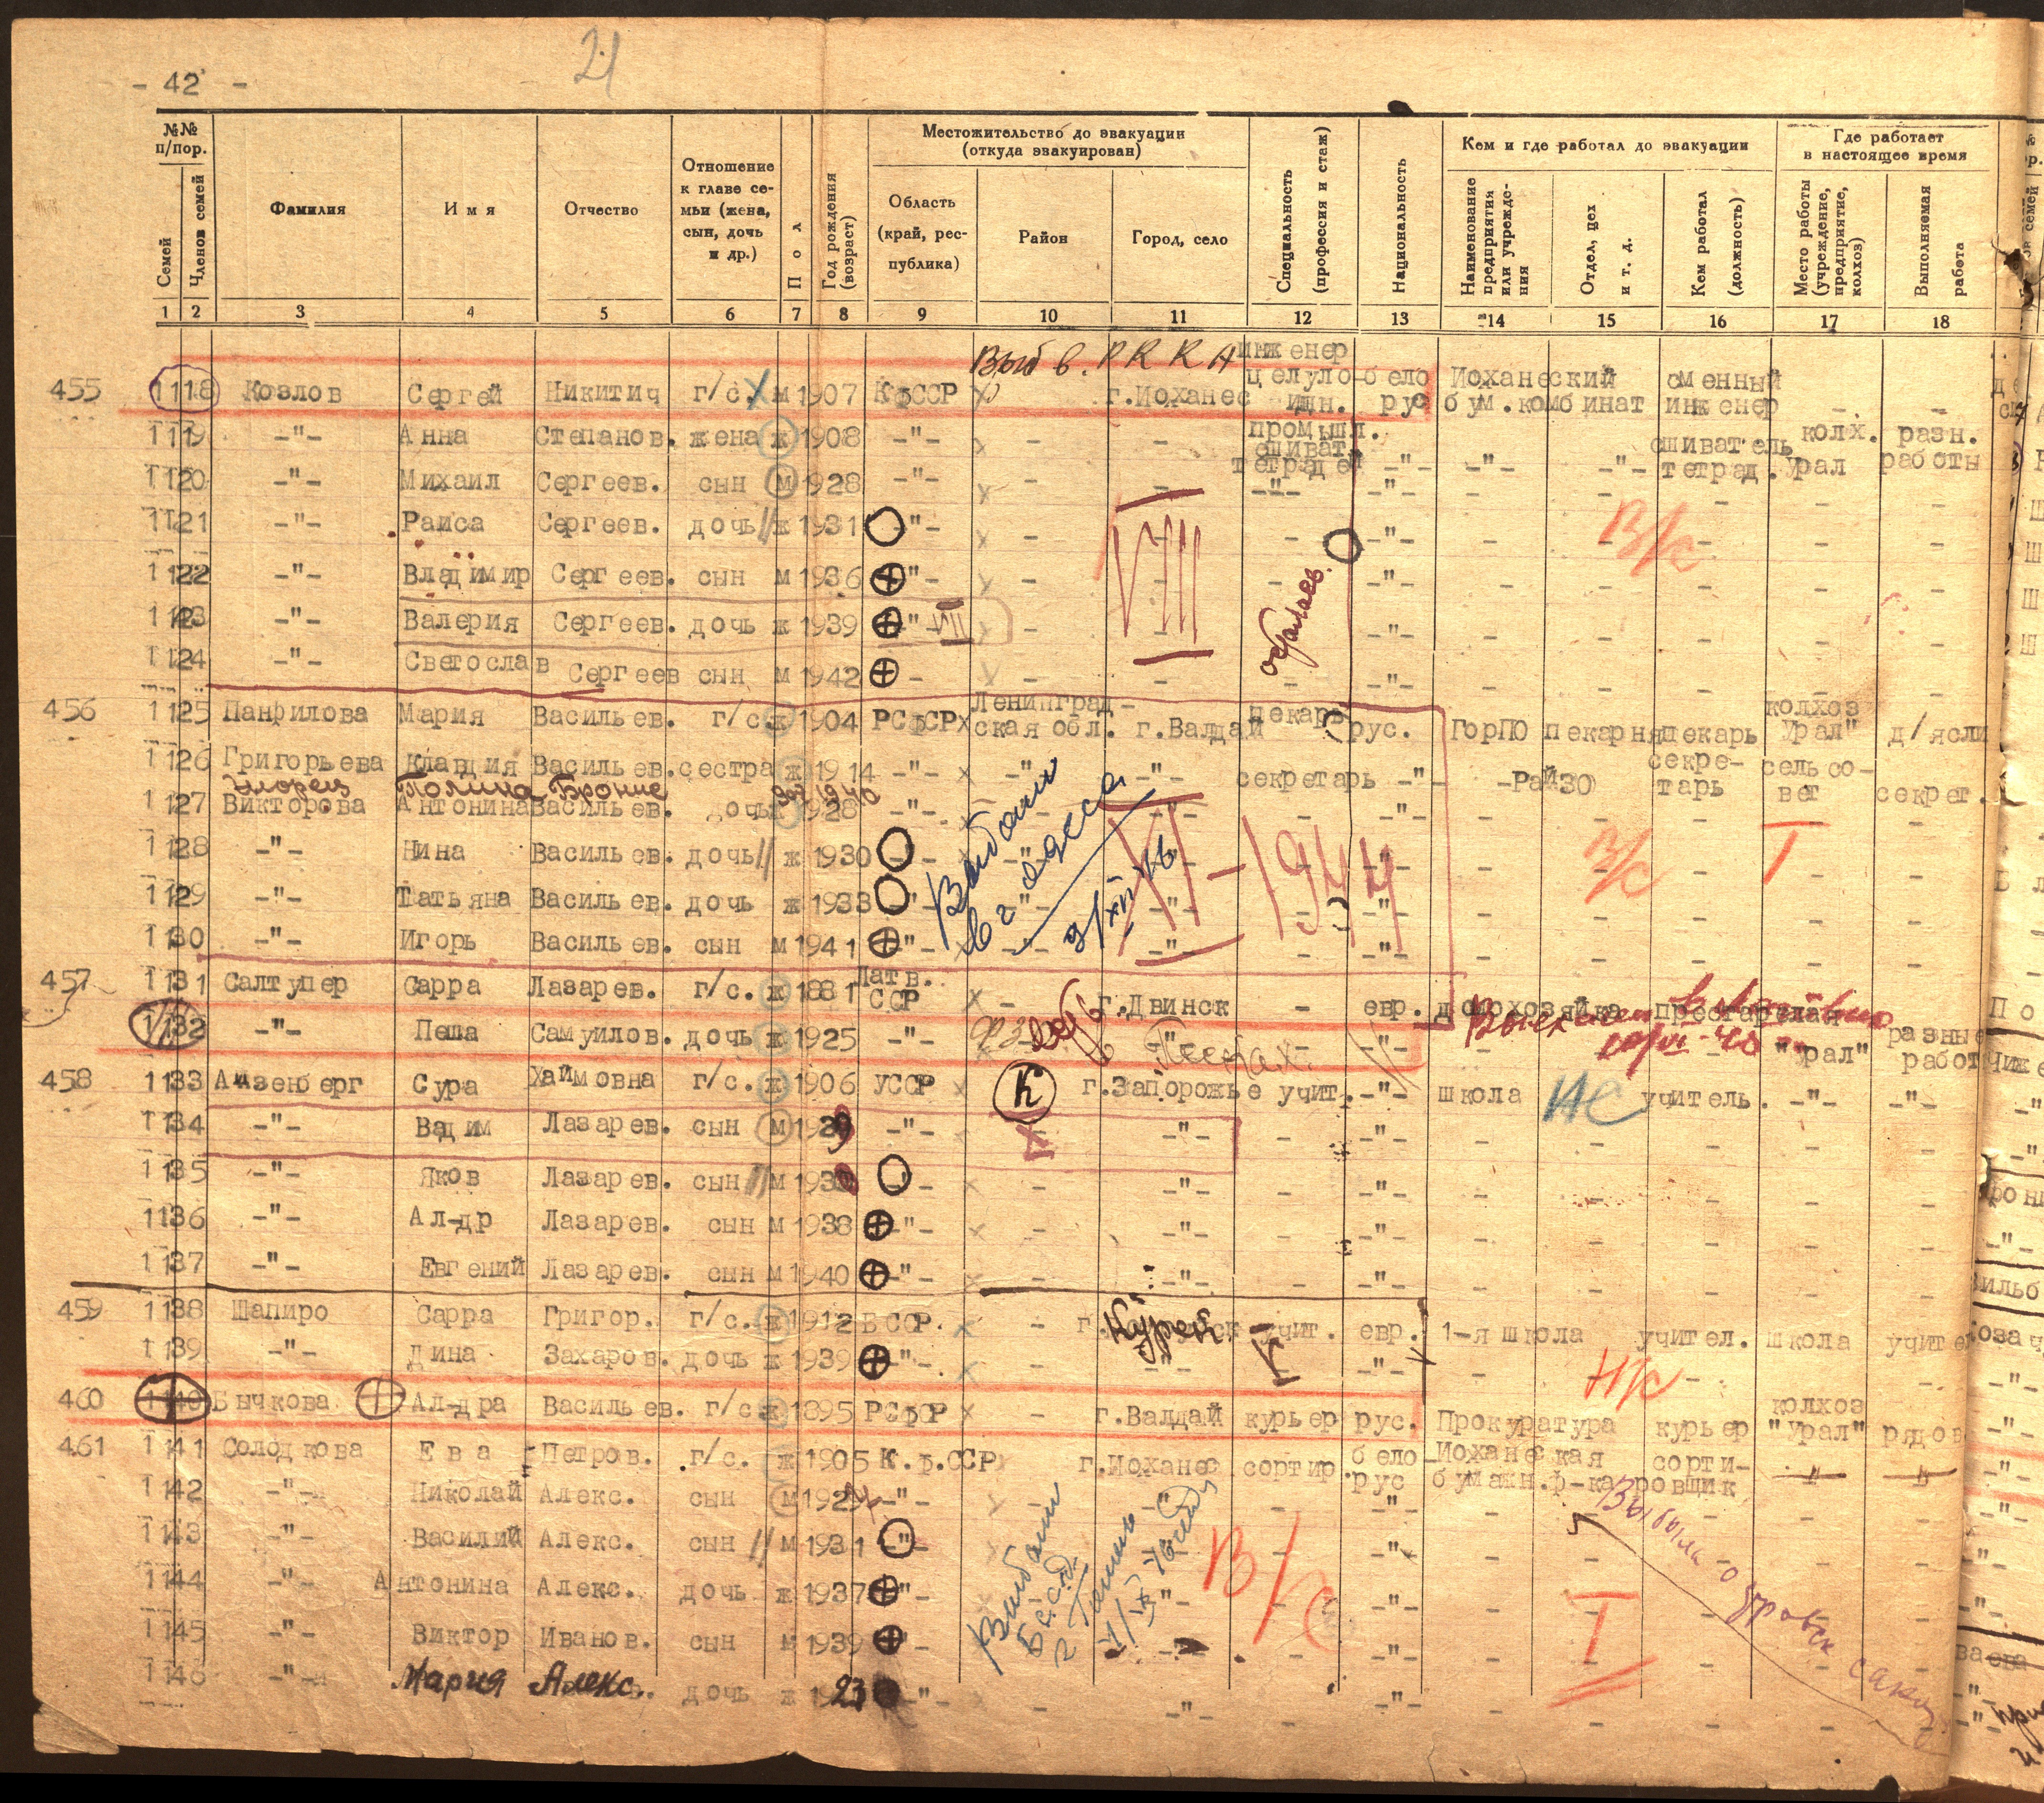 - 42 -
21
№№ п/пор.
Местожительство до эвакуации (откуда эвакуирован)
Кем и где работал до эвакуации
Где работает в настоящее время
Семей
Членов семей
Фамилия
Имя
Отчество
Отношение к главе семьи (жена, сын, дочь и др.)
Пол
Год рождения (возраст)
Область (край, республика)
Район
Город, село
Специальность (профессия и стаж)
Национальность
Наименование предприятия или учреждения
Отдел, цех и т. д.
Кем работал (должность)
Место работы (учреждение, предприятие, колхоз)
Выполняемая работа
1 2 3 4 5 6 7 8 9 10 11 12 13 14 15 16 17 18
Выб в. РККА
455 1118 Козлов Сергей Никитич г/с. м 1907 КфССР г.Иоханес инженер целуло- идн. бело рус Иоханеский бум.комбинат сменный инженер - -
1119 -"- Анна Степанов. жена ж 1908 -"- - - промышл. сшиват. тетрадей -"- -"- -"- сшиватель тетрад. колх. Урал разн. работы
1120 -"- Михаил Сергеев. сын м 1928 -"- - - -"- -"- - - - - -
1121 -"- Раиса Сергеев. дочь ж 1931 -"- - - - -"- - - - - -
В/с
VIII
1122 -"- Владимир Сергеев. сын м 1936 -"- - - - -"- - - - - -
1123 -"- Валерия Сергеев. дочь ж 1939 -"- VIII - - - -"- - - - - -
1124 -"- Светослав Сергеев сын м 1942 - - - - -"- - - - - -
456 1125 Панфилова Мария Васильев. г/с ж 1904 РСфСР Ленинград- ская обл. г.Валдай пекарь рус. ГорПО пекарня пекарь колхоз Урал" д/ясли
1126 Григорьева Клавдия Васильев. сестра ж 1914 -"- -"- -"- секретарь -"- -РайЗО секре- тарь сельсо- вет секрет.
Полина
1940
1127 Викторова Антонина Васильев. дочь ж 1928 -"- - -"- - - - - -
1128 -"- Нина Васильев. дочь ж 1930 -"- -"- - -"- - - - - -
Выбыли
в г Одесса
XI-1944
В/с
I
1129 -"- Татьяна Васильев. дочь ж 1933 -"- -"- -"- - -"- - - - - -
1130 -"- Игорь Васильев. сын м 1941 -"- - -"- - -"- - - - - -
457 1131 Салтупер Сарра Лазарев. г/с. ж 1881 Латв. ССР - г.Двинск - евр. домохозяйка престарелая
1132 -"- Пеша Самуилов. дочь ж 1925 -"- -"- - -"- - "Урал" разные работ
458 1133 Айзенберг Сура Хаймовна г/с. ж 1906 УССР К г.Запорожье учит. -"- школа НС учитель. -"- -"-
1134 -"- Вадим Лазарев. сын м 1929 -"- - -"- - -"- - - - - -
1135 -"- Яков Лазарев. сын м 193 -"- - -"- - -"- - - - - -
1136 -"- Ал-др Лазарев. сын м 1938 -"- - -"- - -"- - - - - -
1137 -"- Евгений Лазарев. сын м 1940 -"- - -"- - -"- - - - - -
459 1138 Шапиро Сарра Григор. г/с. ж 1912 БССР. - г. учит. евр. 1-я школа учител. школа учител
1139 -"- Дина Захаров. дочь ж 1939 -"- - -"- -"- Н/с - - -
460 1140 Бычкова Ал-дра Васильев. г/с ж 1895 РСфСР - г.Валдай курьер рус. Прокуратура курьер колхоз "Урал" рядов
461 1141 Солодкова Ева Петров. г/с. ж 1905 К.ф.ССР г.Иоханес сортир. бело рус Иоханеская бумажн.ф-ка сорти- ровщик -"- -"-
1142 -"- Николай Алекс. сын м 192 -"- - -"- - -"- - - - - -
1143 -"- Василий Алекс. сын м 1931 -"- - -"- - -"- - - - - -
Выбыли
Выбыла
В/с
I
1144 -"- Антонина Алекс. дочь ж 1937 -"- -"- - -"- - - - - -
1145 -"- Виктор Иванов. сын м 1939 -"- - - -"- - - - - -
1146 -"- Мария Алекс. дочь ж 1923 -"- - -"- - -"- - - - - -